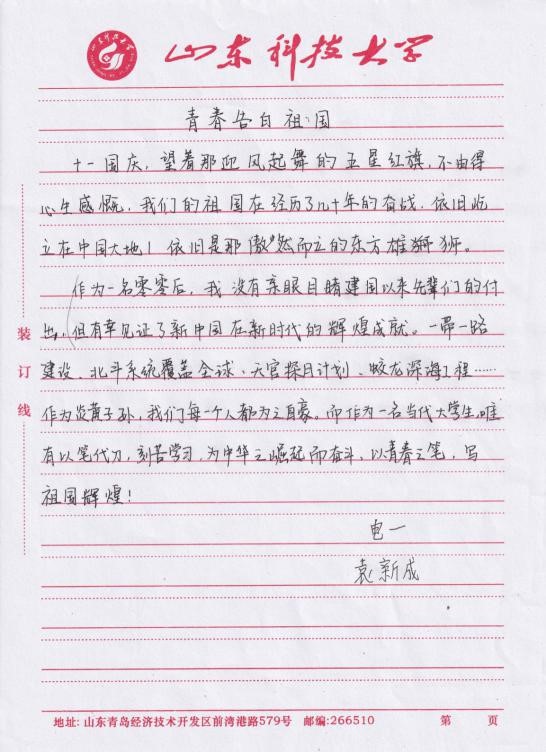 山东科技大学
青春告白祖国
十一国庆,望着那迎风起舞的五星红旗,不由得
心生感慨,我们的祖国在经历了几十年的奋战,依旧屹
立在中国大地!依旧是那傲然而立的东方雄狮狮。
作为一名零零后,我没有亲眼目睹建国以来先辈们的付
出,但有幸见证了新中国在新时代的辉煌成就。一带一路
建设、北斗系统覆盖全球、天宫探月计划、蛟龙深海工程……
作为炎黄子孙,我们每一个人都为之自豪。而作为一名当代大学生,唯
有以笔代刀,刻苦学习,为中华之崛起而奋斗,以青春之笔,写
祖国辉煌!
电一
袁新成
装订线
地址:山东青岛经济技术开发区前湾港路579号 邮编:266510 第 页